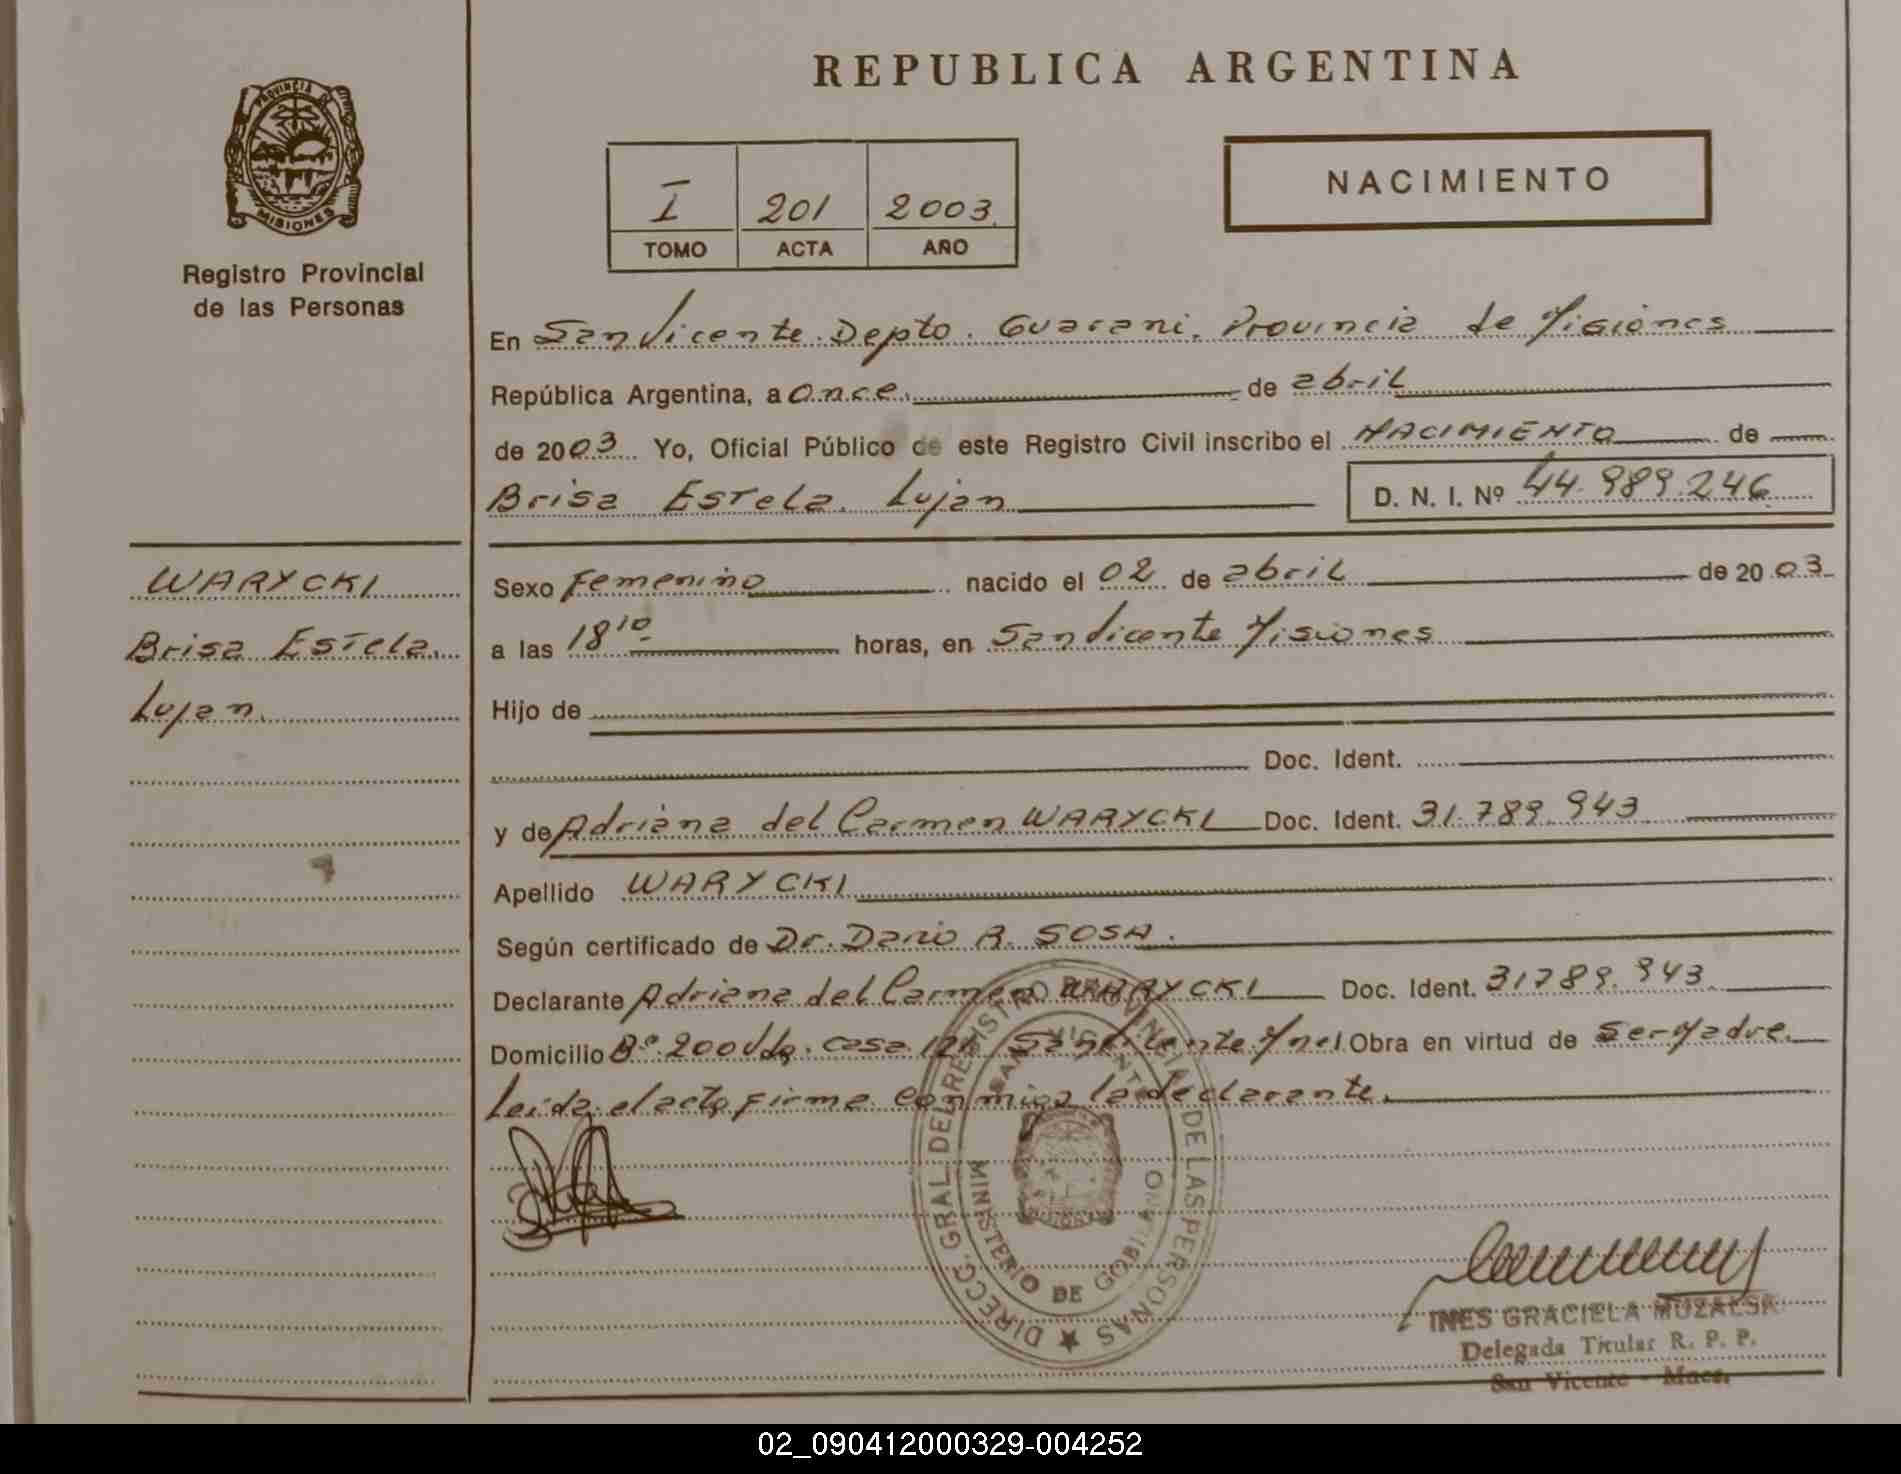 REPUBLICA ARGENTINA
PROVINCIA DE
MISIONES
Registro Provincial
de las Personas
I 201 2003
TOMO ACTA AÑO
NACIMIENTO
En San Vicente. Depto. Guarani. Provincia de Misiones
República Argentina, a once de abril
de 2003 Yo, Oficial Público de este Registro Civil inscribo el NACIMIENTO de
Brisa Estela Lujan D. N. I. Nº 44.989.246
WARYCKI
Brisa Estela
Lujan
Sexo Femenino nacido el 02 de abril de 2003
a las 18 10 horas, en San Vicente Misiones
Hijo de
Doc. Ident.
y de Adriana del Carmen WARYCKI Doc. Ident. 31.789.943
Apellido WARYCKI
Según certificado de Dr. Dario R. SOSA.
Declarante Adriana del Carmen WARYCKI Doc. Ident. 31789.943
Domicilio Bº 200 Vdas. casa San Vicente Mnes Obra en virtud de Ser Madre.
Leida el acta firma conmigo la declarante.
DIRECC. GRAL. DEL REGISTRO PROVINCIAL DE LAS PERSONAS
SAN VICENTE
MINISTERIO DE GOBIERNO
INES GRACIELA
Delegada Titular R. P. P.
San Vicente - Mnes.
02_090412000329-004252